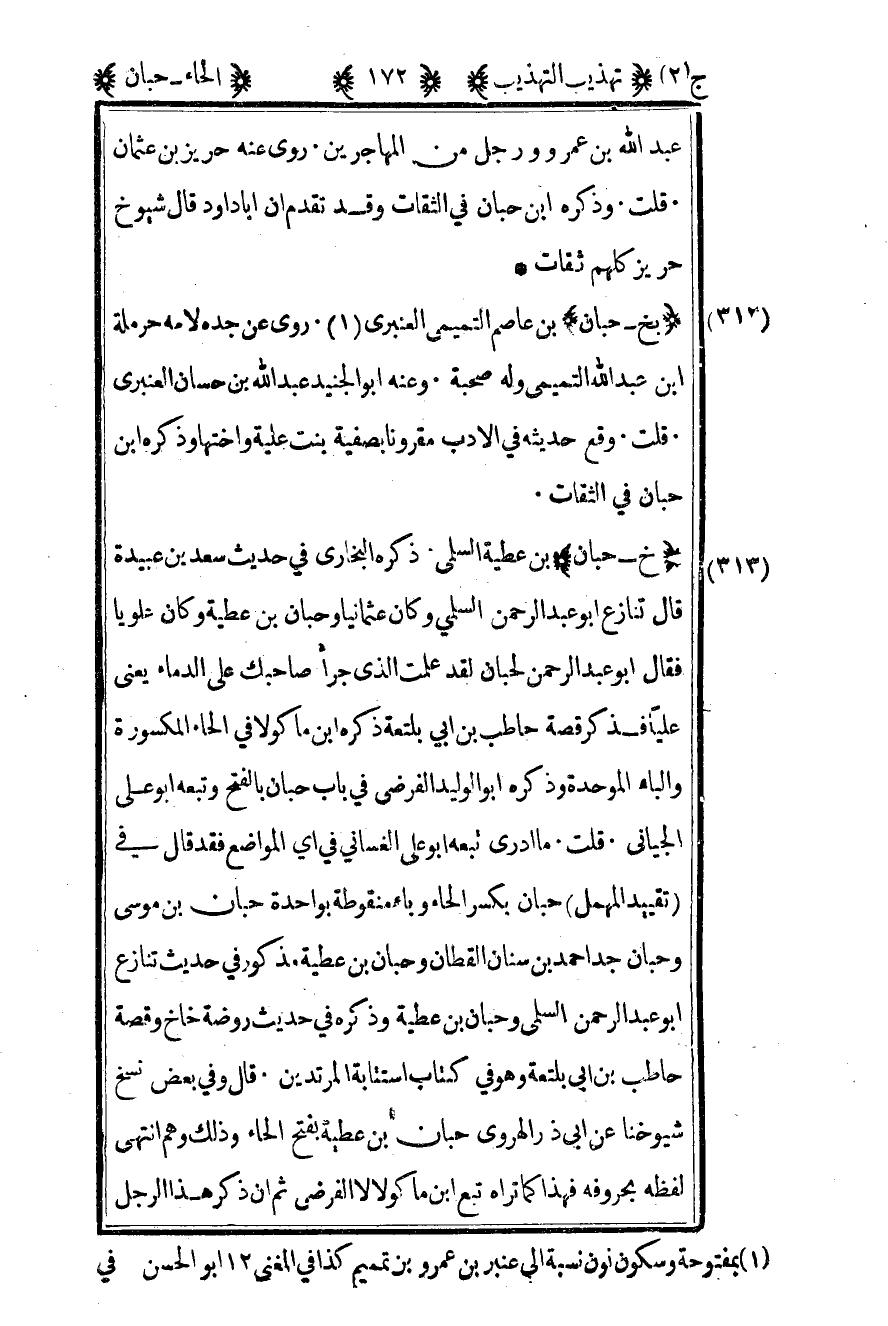 ج(٢) ﴿ تهذيب التهذيب ﴾ ﴿ ١٧٢ ﴾ ﴿ الحاء ـ حبان ﴾
عبد الله بن عمرو و رجل من المهاجرين . روى عنه حريز بن عثمان
. قلت . وذكره ابن حبان في الثقات وقد تقدم ان اباداود قال شيوخ
حريز كلهم ثقات *
(٣١٢) ﴿ بخ ـ حبان ﴾ بن عاصم التميمي العنبرى (١) . روى عن جده لامه حرملة
ابن عبدالله التميمى وله صحبة . وعنه ابوالجنيد عبدالله بن حسان العنبرى
. قلت . وقع حديثه في الادب مقرونا بصفية بنت علية واختها وذكره ابن
حبان في الثقات .
(٣١٣) ﴿ خ ـ حبان ﴾ بن عطية السلمى . ذكره البخارى في حديث سعد بن عبيدة
قال تنازع ابو عبدالرحمن السلمي وكان عثمانيا وحبان بن عطية وكان علويا
فقال ابو عبدالرحمن لحبان لقد علمت الذى جرأ صاحبك على الدماء يعنى
علياً فذكر قصة حاطب بن ابي بلتعة ذكره ابن ماكولا في الحاء المكسورة
والباء الموحدة وذكره ابوالوليد الفرضى في باب حبان بالفتح وتبعه ابو على
الجياني . قلت . ما ادرى تبعه ابو على الغساني في اي المواضع فقد قال في
(تقييد المهمل) حبان بكسر الحاء وباء منقوطة بواحدة حبان بن موسى
وحبان جد احمد بن سنان القطان وحبان بن عطية مذكور في حديث تنازع
ابو عبدالرحمن السلمى وحبان بن عطية وذكره في حديث روضة خاخ وقصة
حاطب بن ابي بلتعة وهو في كتاب استتابة المرتدين . قال وفي بعض نسخ
شيوخنا عن ابي ذر الهروى حبان بن عطية بفتح الحاء وذلك وهم انتهى
لفظه بحروفه فهذا كما تراه تبع ابن ماكولا لا الفرضى ثم ان ذكر هذا الرجل
(١) بمفتوحة وسكون نون نسبة الى عنبر بن عمرو بن تميم كذا في المغنى ١٢ ابو الحسن في